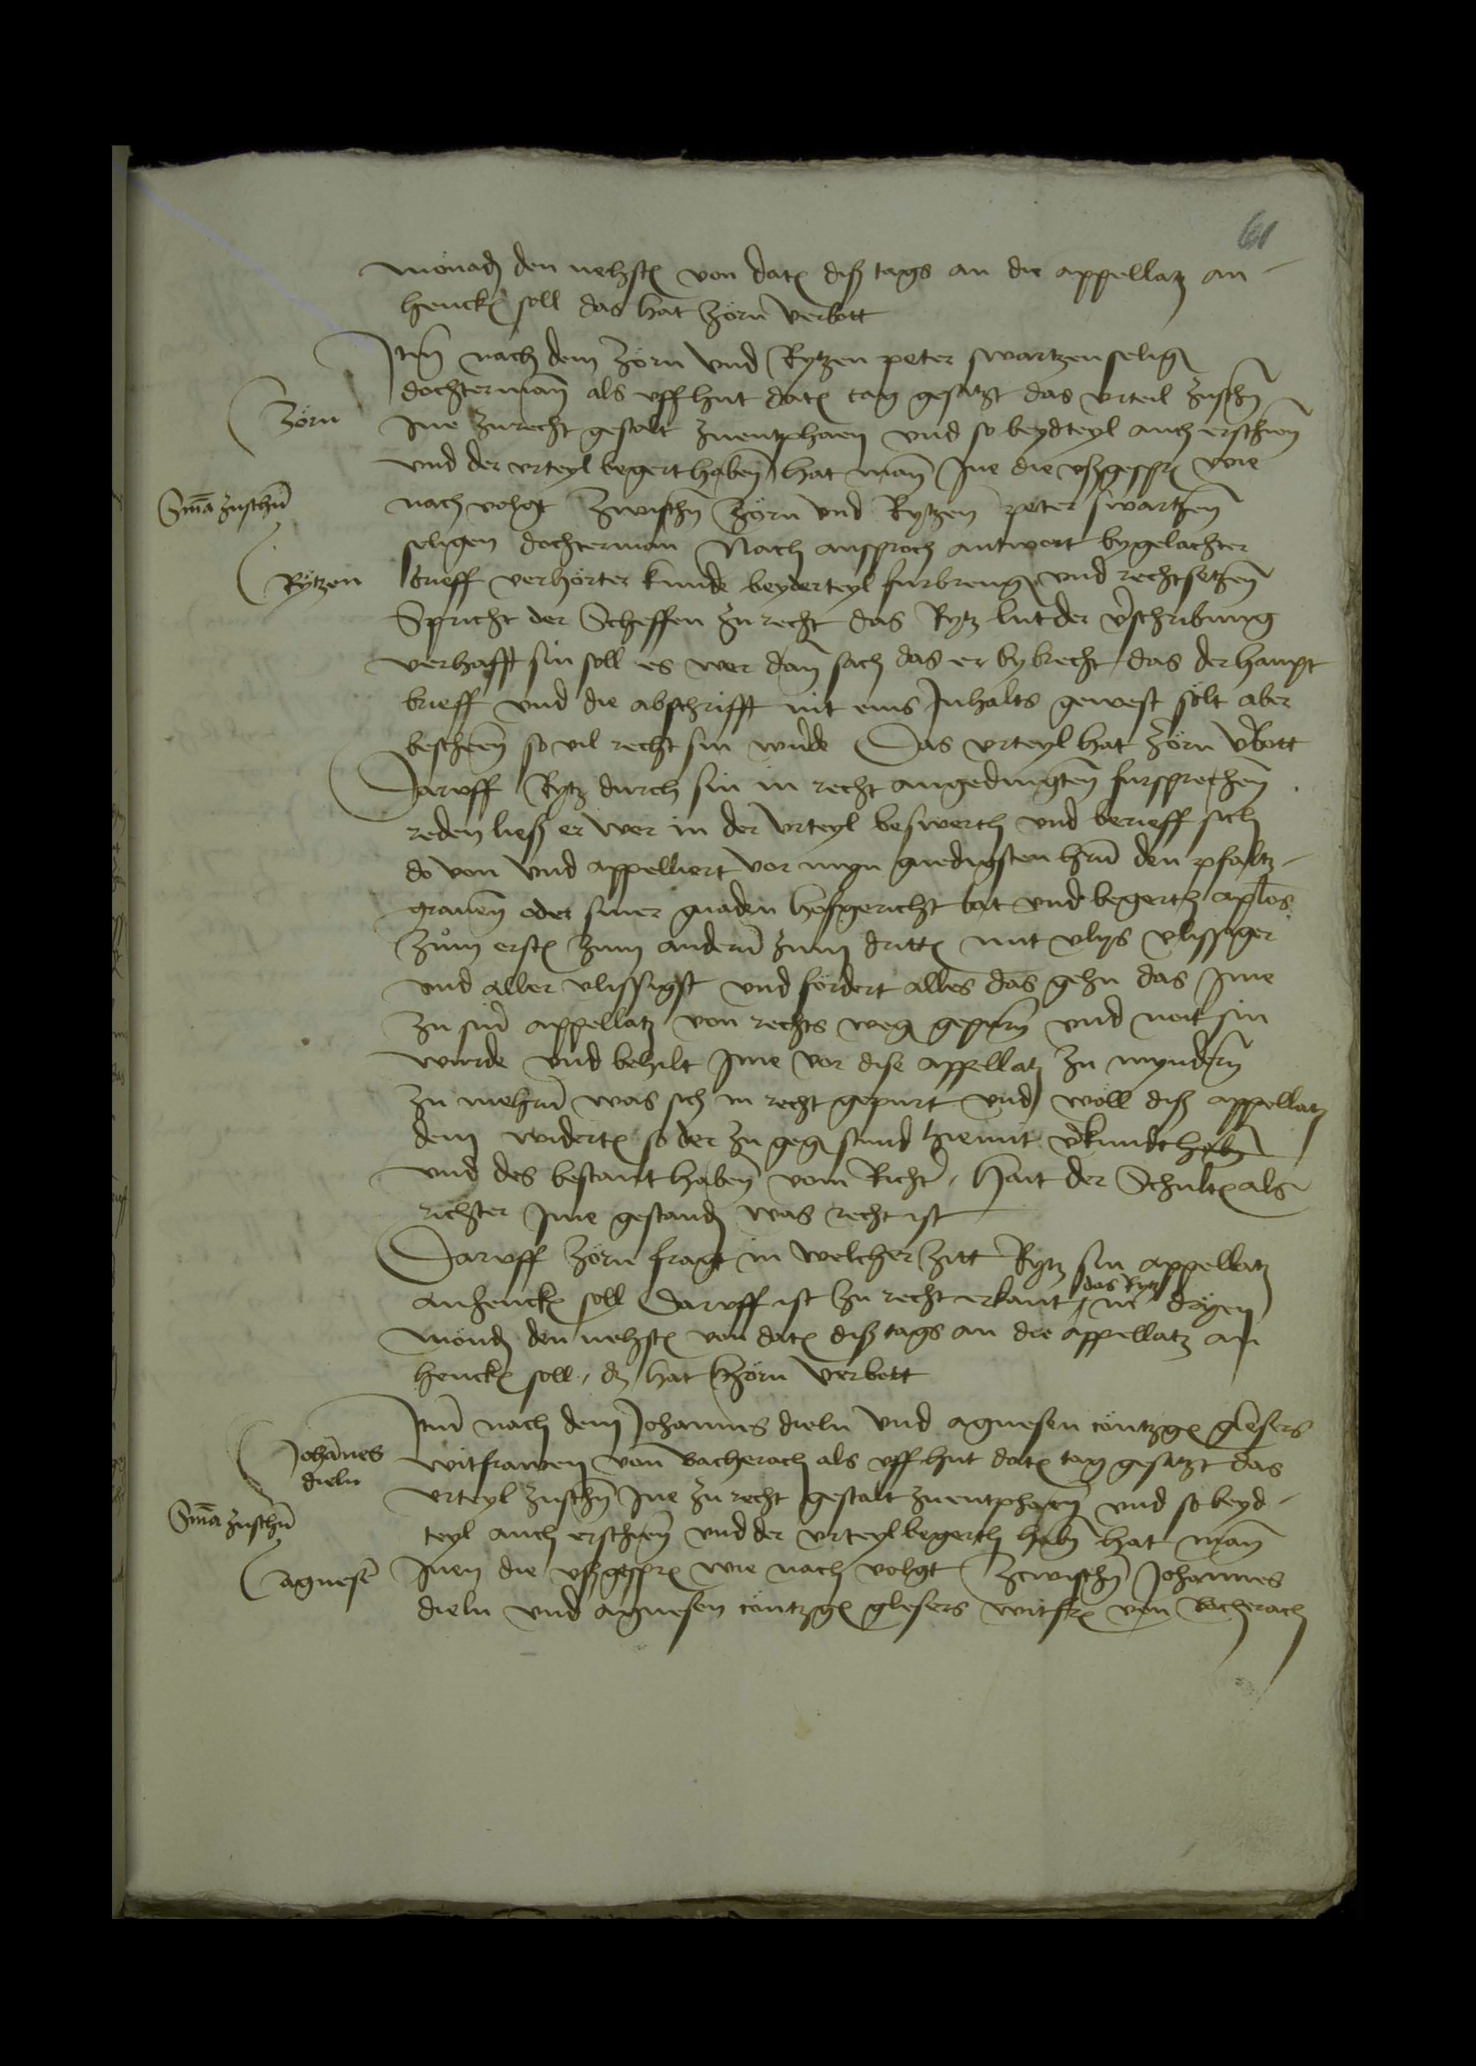 61
monadͤ den nehstͤ von datͤ diß tags an die appellatz an-
henckͤ soll das hat Zörn verbott
Itm̄ nach dem Zörn vnd Rytzen peter swartzen seligͤ
dochterman̄ als vff hut datͤ tag gesatzt das vrteil zusch̄n
Zörn
Ine zu recht gestalt zuentphaen vnd so beydteyl auch erschien̄
vnd der vrteyl begert haben̄ hat man̄ Ine die vßgesprͤ wie
Sm̄a zusch̄n
nach volgt Zwisch̄n Zörn vnd Rytzen peter swartzen̄
seligen dochterman Nach ansproch antwort bygelachter
Rytzen
brieff verhörter kunde beyderteyl furbrengͤ vnd rechtsetzen̄
Spricht der Scheffen zu recht das Rytz lut der v̄schribung
verhafft sin soll es wer dan̄ sach das er bybrecht das der haupt
brieff vnd die abschrifft nit eins Inhalts gewest sölt aber
bescheen̄ so vil recht sin wurde Das vrteyl hat Zörn v̄bott
Daruff Rytz durch sin in recht angedingten̄ fursprechen̄
reden ließ er wer in der vrteyl beswerth vnd berieff sich
do von vnd appelliert vor myn gnedigsten hrn̄ den pfaltz-
grauen̄ oder siner gnaden hofgericht bat vnd begerth apl̄os
Zům erstͤ zum andern̄ zum drittͤ mit vlys vlissiger
vnd aller vlissigst vnd fördert alles das gehn das Ime
zu sin̄ appellatz von rechts wegͤ gepurn̄ vnd noit sin
wurde vnd behilt Ime vor dise appellatz zu myndern̄
zu mehrn̄ was sich in recht gepurt vnd woll diß appellatz
dem widertͤ so der zu gegͤ stund hiemit v̄kundt habn̄
vnd des bestant haben̄ vom Richt̄ hait der Schultͤ als
richter Ime gestandͤ was recht ist
Daruff Zörn fragt in welcher Zitt Rytz sin appellatz
anhenckͤ soll Daruff ist zu recht erkant das Rytz in dryen
mondͤ den nehstͤ von datͤ diß tags an die appellatz an
henckͤ soll dz hat Zörn verbott
Itm̄ nach dem Johannes dieln vnd agnesen contzgͤ glesers
Johan̄nes
dieln
witfrawen von bacherach als vff hut datͤ tag gesatzt das
vrteyl zusch̄n Ine zu recht gestalt zuentphaen̄ vnd so beyd-
Sm̄a zusch̄n
teyl auch erschien̄ vnd der vrteyl begerth habn̄ hat man̄
agnesē
Inen die vßgesprͤ wie nach volgt Zwisch̄n Johannes
dieln vnd agnesen contzgͤ glesers witfrͤ von bacherach